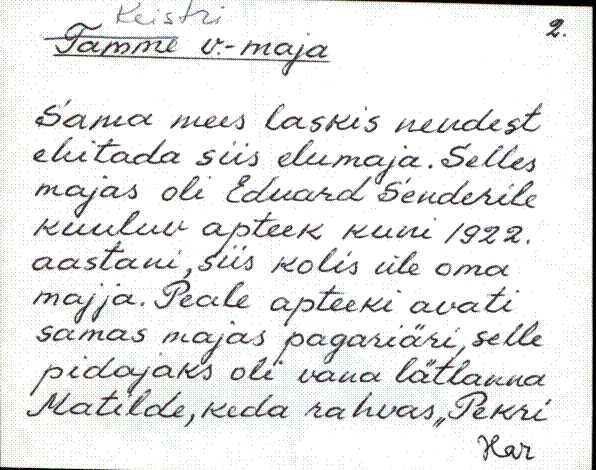 Keistri
2.
Tamme v.-maja
Sama mees laskis nendest
ehitada siis elumaja. Selles
majas oli Eduard Senderile
kuuluv apteek kuni 1922.
aastani, siis kolis üle oma
majja. Peale apteeki avati
samas majas pagariäri, selle
pidajaks oli vana lätlanna
Matilde, keda rahvas „Pekri
Har